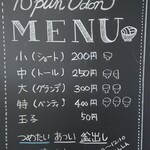 10pun Udon
MENU
小(ショート) 200円
中(トール) 250円
大(グランデ) 300円
特(ベンティ) 400円
玉子 50円
つめたい あつい 釜出し